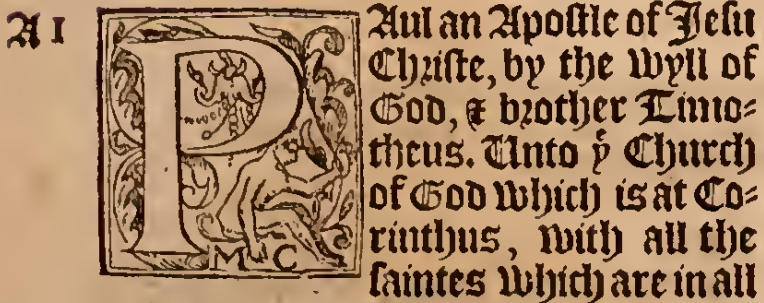 A 1
PAul an Apoſtle of Jeſu
Chriſte, by the wyll of
God, & brother Timo=
theus. Unto yͤ Church
of God which is at Co=
rinthus, with all the
ſaintes which are in all
M C